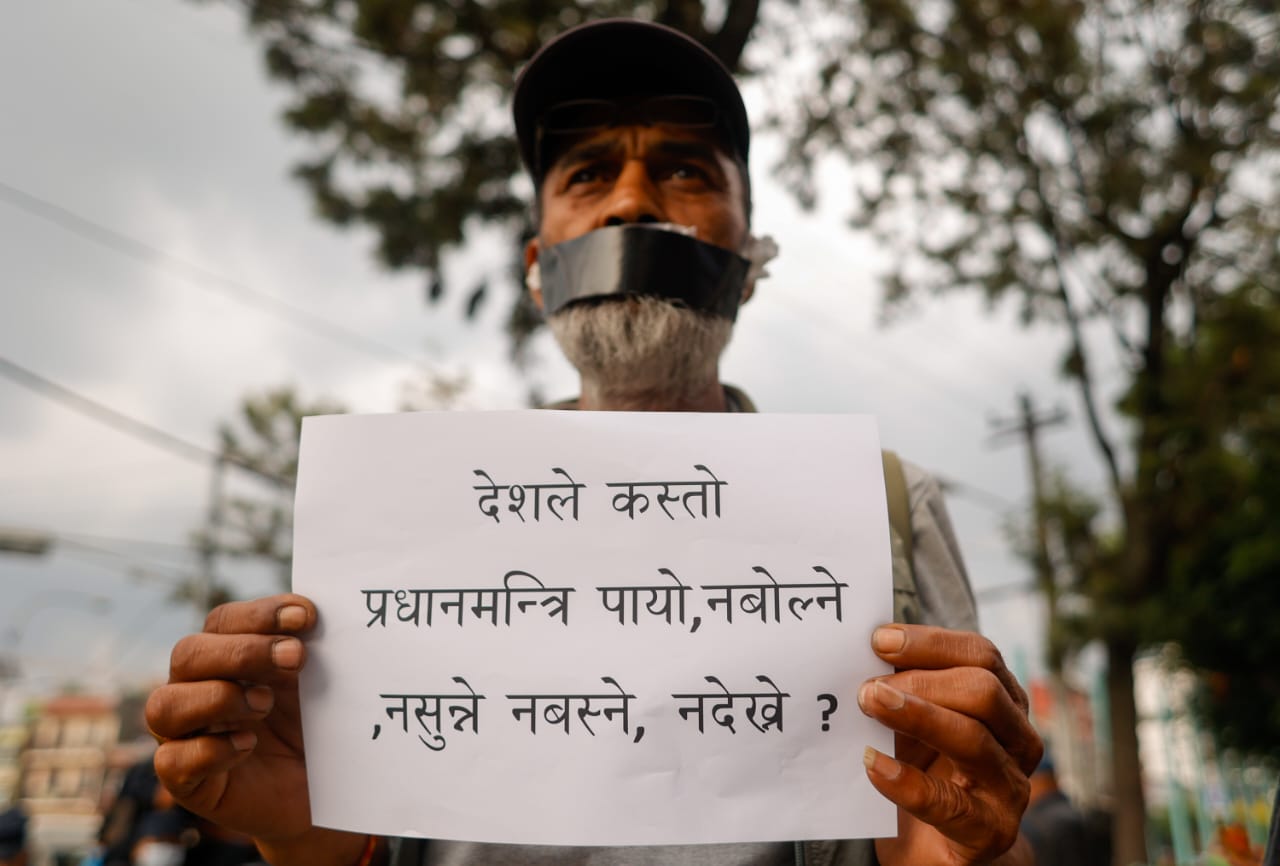 देशले कस्तो
प्रधानमन्त्रि पायो,नबोल्ने
,नसुन्ने नबस्ने, नदेख्ने ?